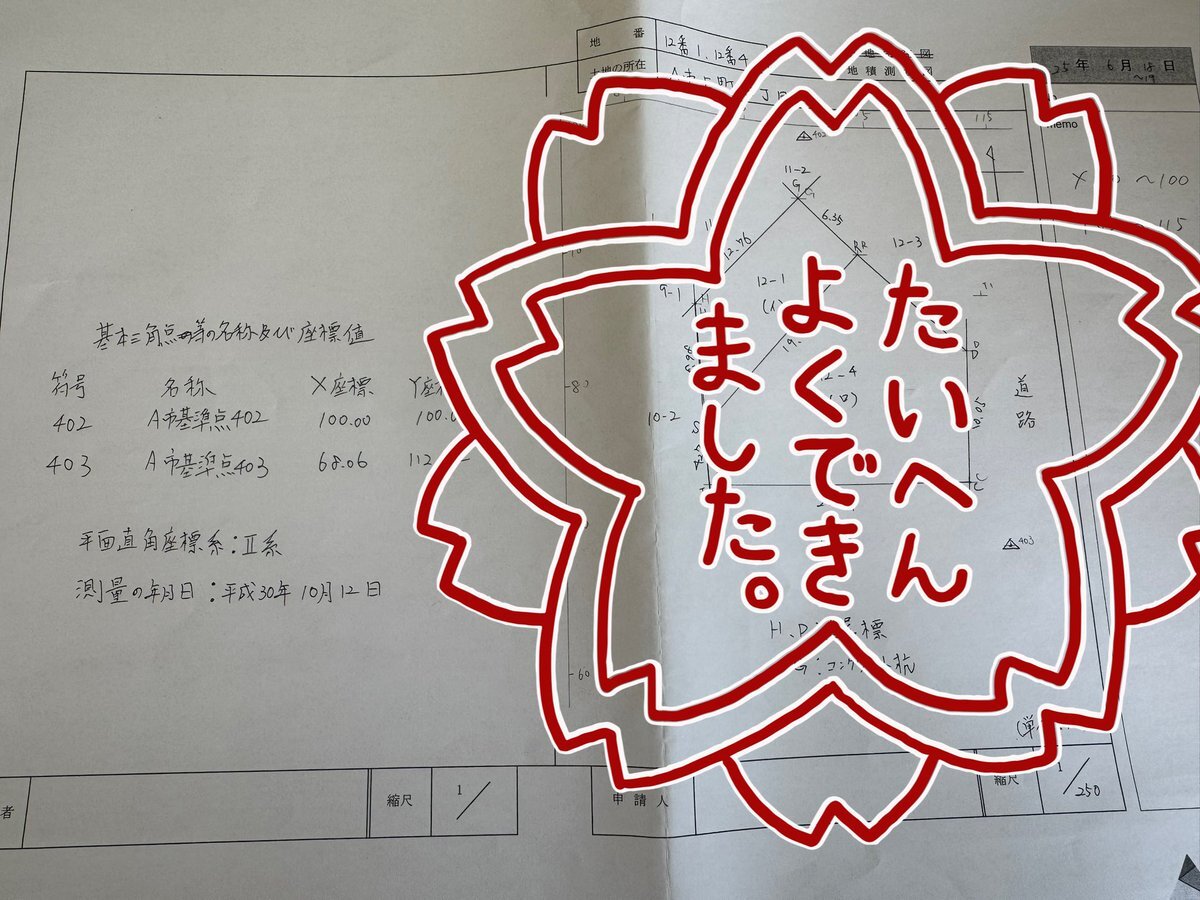 地番
12番1, 12番4
地積測
25年 6月 18日
〜19
memo
〜100
115
402
11-2
G
6.35
12.76
RR
12-3
9-1
12-1
(イ)
19.
12-4
(ロ)
10-2
80
道路
C
403
60
基本三角点等の名称及び座標値
符号 名称 X座標 Y座
402 A市基準点402 100.00 100.
403 A市基準点403 68.06 112
平面直角座標系:Ⅱ系
測量の年月日:平成30年10月12日
たいへん
よくでき
ました。
者
縮尺
1/
申請人
縮尺
1/250